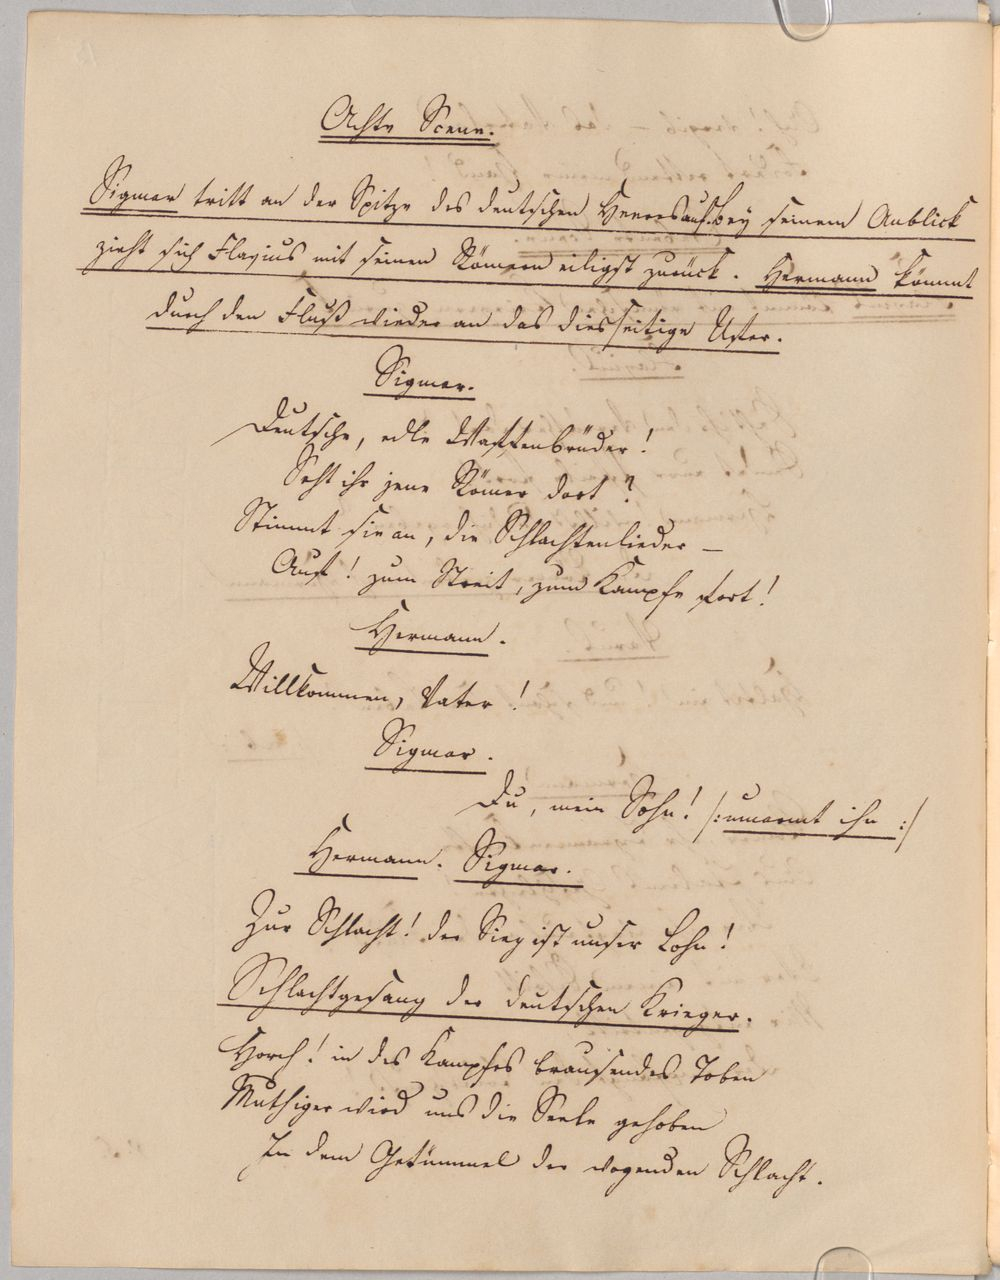 Achte Scene.
Sigmar tritt an der Spitze des deutschen Heeres auf. bey seinem Anblick
zieht sich Flavius mit seinen Römern eiligst zurück. Hermann kömmt
durch den Fluß wieder an das diesseitige Ufer.
Sigmar.
Deutsche, edle Waffenbrüder!
Seht ihr jene Römer dort?
Stimmt sie an, die Schlachtenlieder –
Auf! zum Streit, zum Kampfe fort!
Hermann.
Willkommen, Vater!
Sigmar.
Du, mein Sohn! /: umarmt ihn :/
Hermann. Sigmar.
Zur Schlacht! der Sieg ist unser Lohn!
Schlachtgesang der deutschen Krieger.
Horch! in des Kampfes brausendes Toben
Muthiger wird uns die Seele gehoben
In dem Getümmel der wogenden Schlacht.